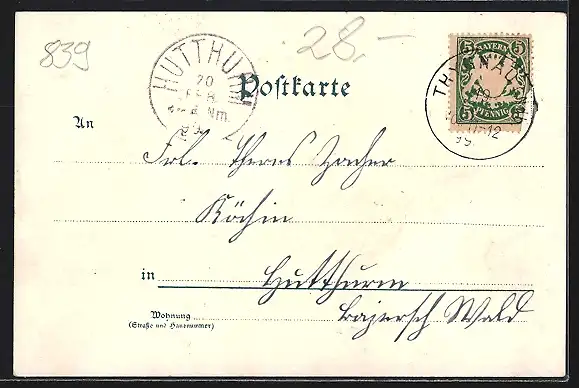 839
28.-
HUTTHURM
20
FEB
Nm.
99
Postkarte
5 BAYERN 5
5 PFENNIG 5
THYRNAU
12
99.
An
Frl. Theres Zacher
Köchin
in Hutthurm
Wohnung
(Straße und Hausnummer)
bayersch Wald